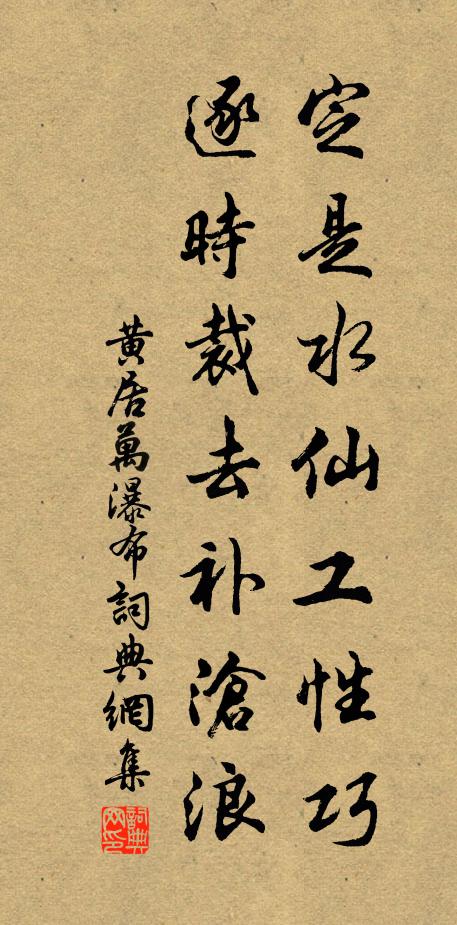 定是水仙工性巧
逐時裁去补滄浪
黄居萬瀑布詞典網集
詞典网印